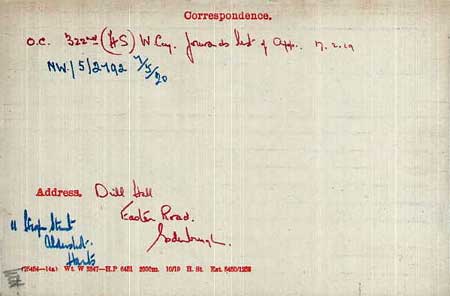 Correspondence.
O.C. 322nd (HS) W Coy. forwards list of App. 17.2.19
NW/5/2792 7/5/20
Address. Drill Hall
Easter Road.
Edinburgh.
11 Street
Aldershot.
Hants
(26454—14a) Wt. W 2547—H.P 6421 200m. 10/19 H. St.